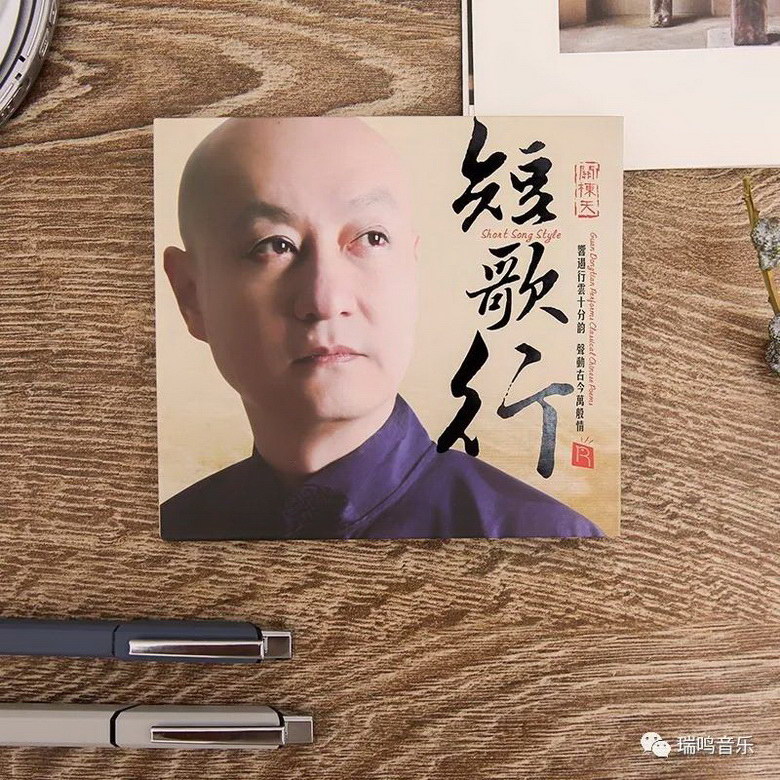 短歌行
Short Song Style
關棟天
Guan Dongtian Performs Classical Chinese Poems
響遏行雲十分韵 聲動古今萬般情
R
瑞鸣音乐